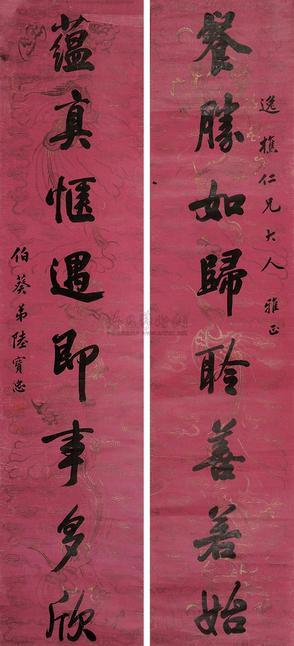 逸樵仁兄大人雅正
餐勝如歸聆善若始
蘊真愜遇即事多欣
伯葵弟陸寶忠